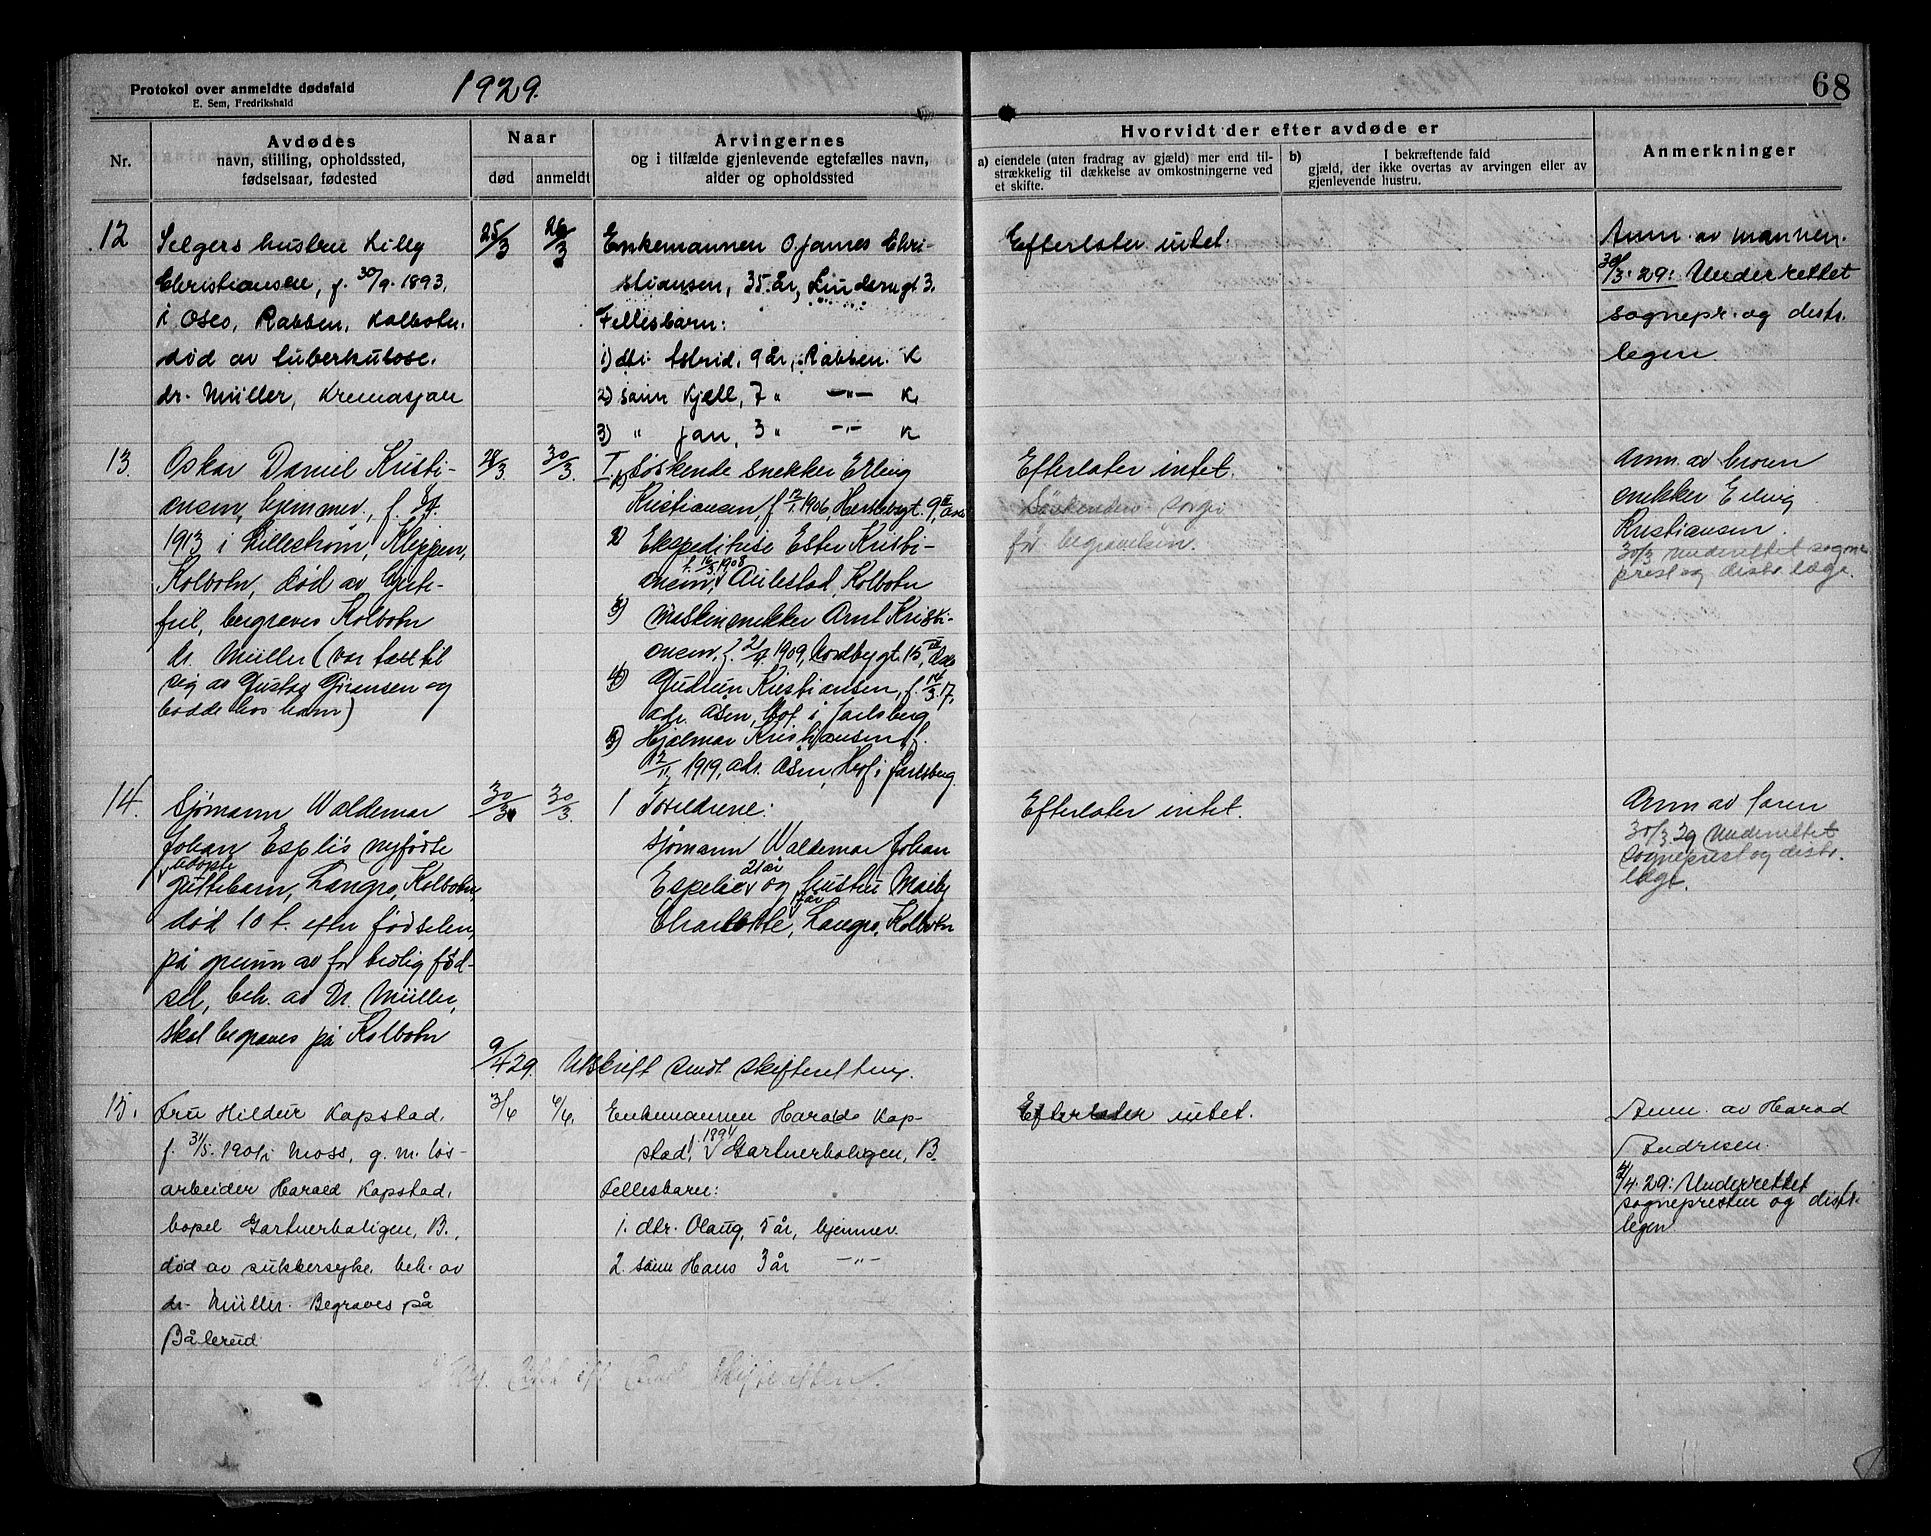 Protokol over anmeldte dødsfald
E. Sem, Fredrikshald
1929.
68
Nr.
Avdødes
navn, stilling, opholdssted,
fødselsaar, fødested
Naar
død
anmeldt
Arvingernes
og i tilfælde gjenlevende egtefælles navn,
alder og opholdssted
Hvorvidt der efter avdøde er
a) eiendele (uten fradrag av gjæld) mer end til-
strækkelig til dækkelse av omkostningerne ved
et skifte.
b)
I bekræftende fald
gjæld, der ikke overtas av arvingen eller av
gjenlevende hustru.
Anmerkninger
12
Selgers hustru Lilly
Christiansen, f. 30/9. 1893,
i Oslo, Rabben, Kolbotn.
død av tuberkulose.
dr. Müller, Kremasjon
25/3
26/3
Enkemannen O. James Chri-
stiansen, 35 år, Linderugt 3.
Fellesbarn:
1) dtr Astrid, 9 år, Rabben. K
2) sønn Kjell, 7 " -"- K
3) " Jan, 3 " -"- K
Efterlater intet.
Anm. av mannen.
30/3. 29: Underrettet
sognepr. og distr.
legen
13.
Oskar Daniel Kristi-
ansen, hjemmev., f.
1913 i Lillestrøm, Klippen,
Kolbotn, død av hjerte-
feil, begraves Kolbotn
dr. Müller (var tatt til
sig av Gustav Gøransen og
bodde hos ham)
28/3.
30/3.
I. 1) Søskende snekker Erling
Kristiansen, f. 12/1. 1906, Herslebsgt. 9, III Oslo
2) Ekspeditrise Ester Kristi-
ansen, f. 16/3. 1908 Aulestad, Kolbotn
3) Maskinsnikker Arnt Kristi-
ansen, f. 21/9 1909, Nordbygt. 15 III, Oslo
4) Gudrun Kristiansen, f. 14/3. 17,
adr. Åsen, Hof i Jarlsberg
5) Hjalmar Kristiansen, f.
12/11, 1919, adr. Åsen, Hof i Jarlsberg.
Efterlater intet.
Søskenden sørger
for begravelsen.
Anm. av broren
snikker Erling
Kristiansen.
30/3 Underrettet sogne-
prest og distr. læge.
14.
Sjømann Waldemar
Johan Espliš nyfødte
guttebarn, Langro, Kolbotn,
død 10 t. efter fødselen,
på grunn av for tidlig fød-
sel, beh. av Dr. Müller,
skal begraves på Kolbotn
30/3
30/3.
1 Foreldrene:
Sjømann Waldemar Johan
Espelie 21 år og hustru Maiby
Charlotte, Langro, Kolbotn
Efterlater intet.
Anm av faren
30/3 29 Underrettet
sogneprest og distr.
læge.
9/4. 29. Utskrift sendt skifteretten.
15.
Fru Hildur Kopstad,
f. 31/5. 1901 i Moss, g. m. løs-
arbeider Harald Kopstad,
bopel Gartnerboligen, B.,
død av sukkersyke. beh. av
dr. Müller. Begraves på
Bålerud.
3/4
4/4.
Enkemannen Harald Kop-
stad, f. 1894 Gartnerboligen, B.
Fellesbarn:
1. dtr. Olaug, 5 år, hjemmev.
2. sønn Hans 3 år -"-
Efterlater intet.
Anm. av Harald
Andresen.
4/4. 29: Underrettet
sognepresten og distr.
legen